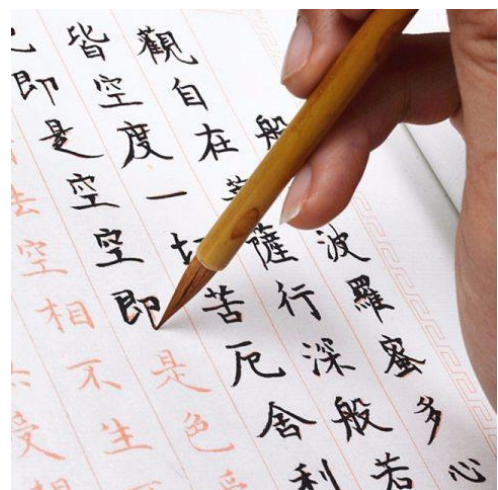 般波羅蜜多心
觀自在菩薩行深般若
皆空度一切苦厄舍利
即是空空即是色受
法空相不生
受想